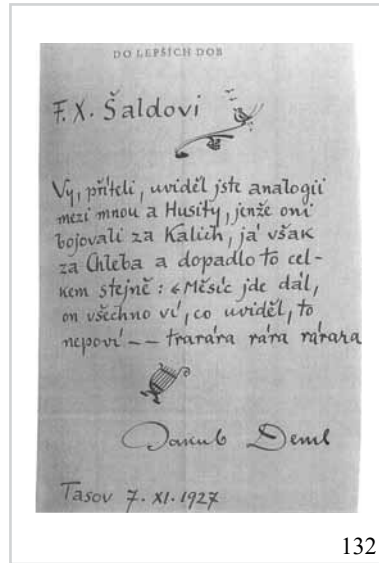 DO LEPŠÍCH DOB
F. X. Šaldovi
Vy, příteli, uviděl jste analogii
mezi mnou a Husity, jenže oni
bojovali za Kalich, já však
za Chleba a dopadlo to cel-
kem stejně: «Měsíc jde dál,
on všechno ví, co uviděl, to
nepoví -- trarára rára rárara
Jakub Deml
Tasov 7. XI. 1927
132